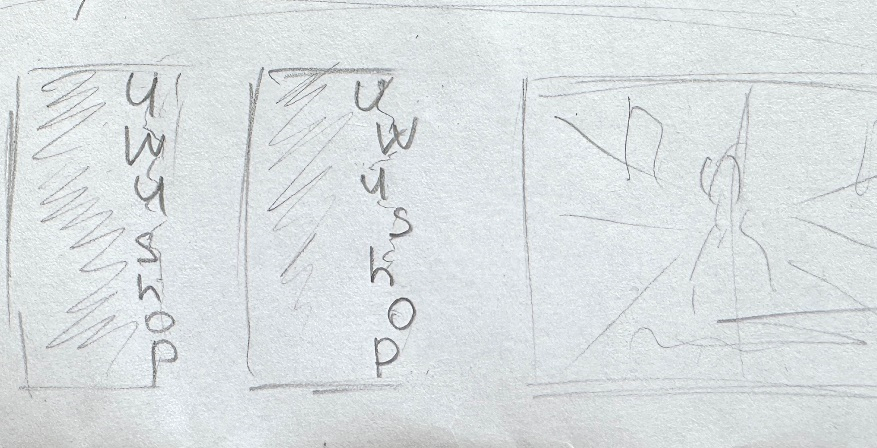 u
w
u
s
h
o
p
u
w
u
s
h
o
p